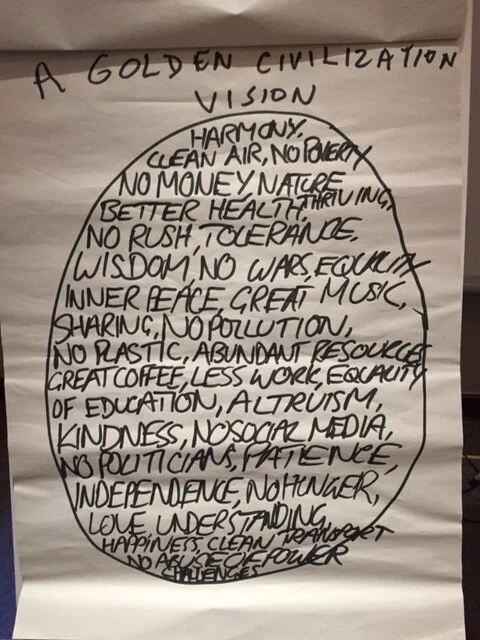 A GOLDEN CIVILIZATION
VISION
HARMONY,
CLEAN AIR, NO POVERTY
NO MONEY, NATURE
BETTER HEALTH, THRIVING,
NO RUSH, TOLERANCE,
WISDOM, NO WARS, EQUALITY
INNER PEACE, GREAT MUSIC,
SHARING, NO POLLUTION,
NO PLASTIC, ABUNDANT RESOURCES
GREAT COFFEE, LESS WORK, EQUALITY
OF EDUCATION, ALTRUISM,
KINDNESS, NO SOCIAL MEDIA,
NO POLITICIANS, PATIENCE,
INDEPENDENCE, NO HUNGER,
LOVE, UNDERSTANDING,
HAPPINESS, CLEAN TRANSPORT
NO ABUSE OF POWER
CHALLENGES